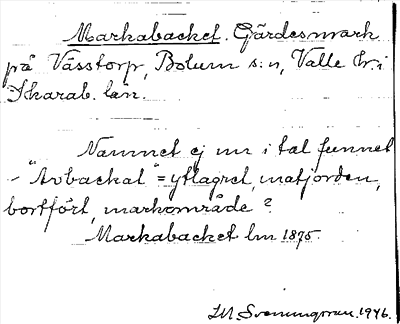 Markabacket. Gärdesmark
på Vässtorp, Bolum s:n, Valle hr i
Skarab. län.
Namnet ej nu i tal funnet
- "Avbackat" = ytlagret, matjorden,
bortfört, markområde?
Markabacket lm 1875.
Svenungsson. 1946.